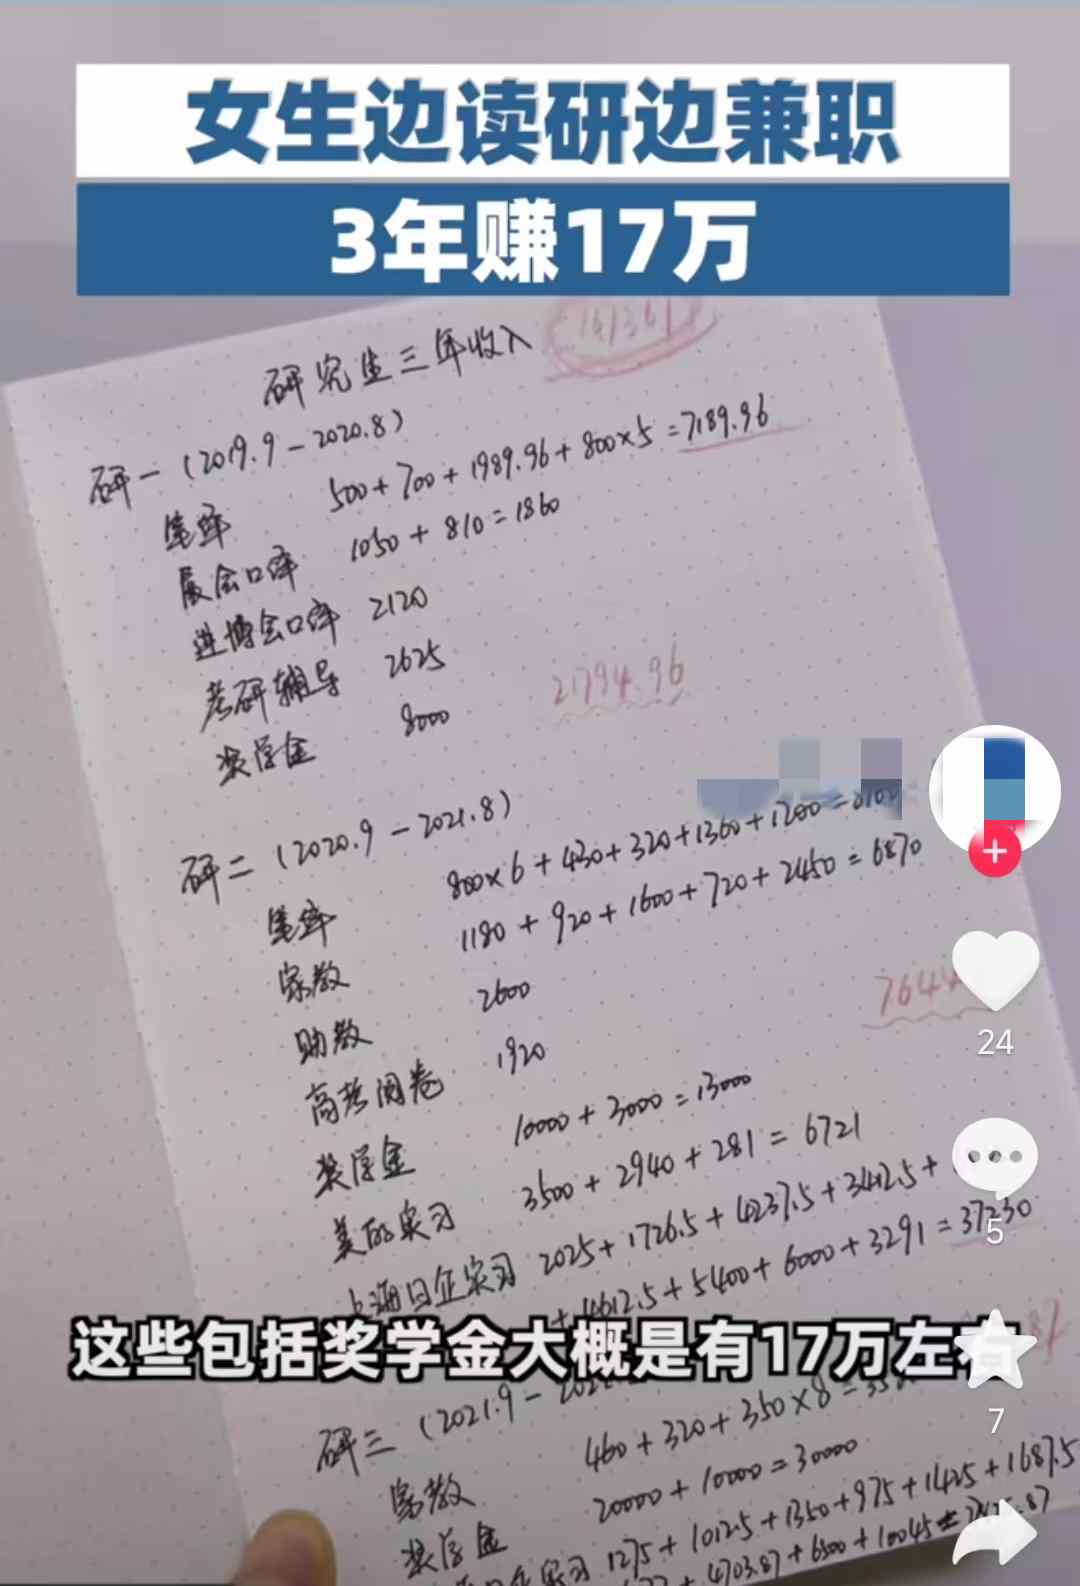 女生边读研边兼职
3年赚17万
研究生三年收入
研一 (2019.9-2020.8)
笔译 500+700+1989.96+800×5=7189.96
展会口译 1050+810=1860
进博会口译 2120
考研辅导 2625
奖学金 8000
21794.96
研二 (2020.9-2021.8)
笔译 800×6+430+320+1360+1200=
家教 1180+920+1600+720+2450=6870
助教 2600
高考阅卷 1920
7644
奖学金 10000+3000=13000
美的实习 3500+2940+281=6721
上海日企实习 2025+1726.5+4237.5+3412.5+
+4612.5+5400+6000+3291=37230
这些包括奖学金大概是有17万左右
研三 (2021.9-
家教 460+320+350×8=
奖学金 20000+10000=30000
实习 1275+1012.5+1350+975+1425+1687.5
+4703.87+6500+10045=
24
5
7